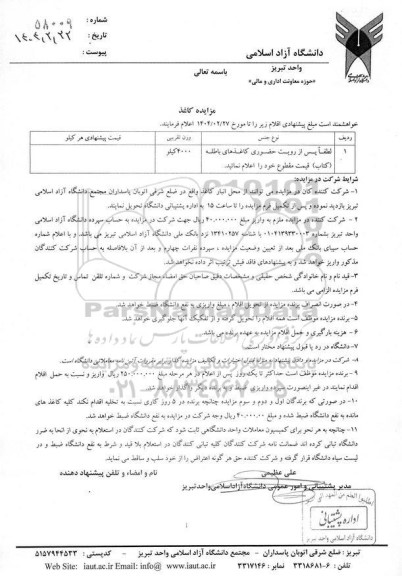 شماره : ۵۸۰۰۹
تاریخ : ۱۴۰۲,۲,۲۳
پیوست :
دانشگاه آزاد اسلامی
واحد تبریز
«حوزه معاونت اداری و مالی»
باسمه تعالی
مزایده کاغذ
خواهشمند است مبلغ پیشنهادی اقلام زیر را تا مورخ ۱۴۰۲/۰۲/۲۷ اعلام فرمایند.
ردیف نوع جنس وزن تقریبی قیمت پیشنهادی هر کیلو
۱ لطفاً پس از رویت حضوری کاغذهای باطله ۴۰۰۰کیلو
(کتاب) قیمت مقطوع خود را اعلام نمائید.
شرایط شرکت در مزایده:
۱- شرکت کننده گان در مزایده می توانند از محل انبار کاغذ واقع در ضلع شرقی اتوبان پاسداران مجتمع دانشگاه آزاد اسلامی
تبریز بازدید نموده و پس از تکمیل فرم مزایده را تا ساعت ۱۵ به اداره پشتیبانی دانشگاه تحویل نمایند.
۲ - شرکت کننده در مزایده ملزم به واریز مبلغ ۴۰,۰۰۰,۰۰۰ ریال جهت شرکت در مزایده به حساب سپرده دانشگاه آزاد اسلامی
واحد تبریز بشماره ۰۱۰۴۱۳۹۳۳۰۰۳ با شناسه ۱۳۴۱۰۲۵۷ نزد بانک ملی دانشگاه آزاد اسلامی تبریز می باشد. و با اعلام شماره
حساب سیبای بانک ملی بعد از تعیین وضعیت مزایده ، سپرده نفرات چهارم و بعد از آن بلافاصله به حساب شرکت کنندگان
مذکور واریز خواهد شد و به پیشنهادهای فاقد فیش ترتیب اثر داده نخواهد شد.
۳-قید نام و نام خانوادگی شخص حقیقی و مشخصات دقیق صاحبان حق امضاء مجاز شرکت و شماره تلفن تماس و تاریخ تکمیل
فرم مزایده الزامی می باشد.
۴- در صورت انصراف برنده مزایده از تحویل اقلام ، مبلغ واریزی به نفع دانشگاه ضبط خواهد شد.
۵- برنده مزایده موظف است همه اقلام را تحویل گرفته و از تفکیک آنها جلوگیری خواهد شد.
۶- هزینه بارگیری و حمل اقلام مزایده به عهده برنده می باشد.
۷- دانشگاه در رد یا قبول پیشنهاد مختار است.
۹- برنده مزایده موظف است حداکثر تا یک روز پس از اعلام در هر مرحله مبلغ ۲۵۰,۰۰۰,۰۰۰ ریال واریز و نسبت به حمل اقلام
۱۰- در صورتی که برندگان اول و دوم و سوم مزایده چنانچه برنده دو ۵ روز کاری نسبت به تخلیه اقدام نکند کلیه کاغذ های
مانده به نفع دانشگاه ضبط شده و مبلغ ۴۰,۰۰۰,۰۰۰ ریال وجه شرکت در مزایده به نفع دانشگاه ضبط خواهد شد.
۱۱- چنانچه به هر نحو برای کمیسیون معاملات واحد دانشگاهی ثابت شود که شرکت کنندگان در استعلام به نحوی از انحا به ضرر
دانشگاه تبانی کرده اند ضمانت نامه شرکت کنندگان کلیه تبانی کنندگان در استعلام بلا قید و شرط به نفع دانشگاه ضبط و در
لیست سیاه دانشگاه قرار گرفته و شرکت کننده حق هر گونه اعتراض را از خود سلب و ساقط می نماید.
علی عظیمی نام و امضاء و تلفن پیشنهاد دهنده
مدیر پشتیبانی و امور عمومی دانشگاه آزاد اسلامی واحد تبریز
اداره پشتیبانی
دانشگاه آزاد اسلامی واحد تبریز
۰۲۱-۸۸۳۴۹۶۷۰
تبریز : ضلع شرقی اتوبان پاسداران - مجتمع دانشگاه آزاد اسلامی واحد تبریز - کدپستی : ۵۱۵۷۹۴۴۵۳۳
Web Site: iaut.ac.ir Email: info@ iaut.ac.ir نمابر : ۳۳۱۷۱۴۶ تلفن : ۶-۳۳۱۸۶۸۱